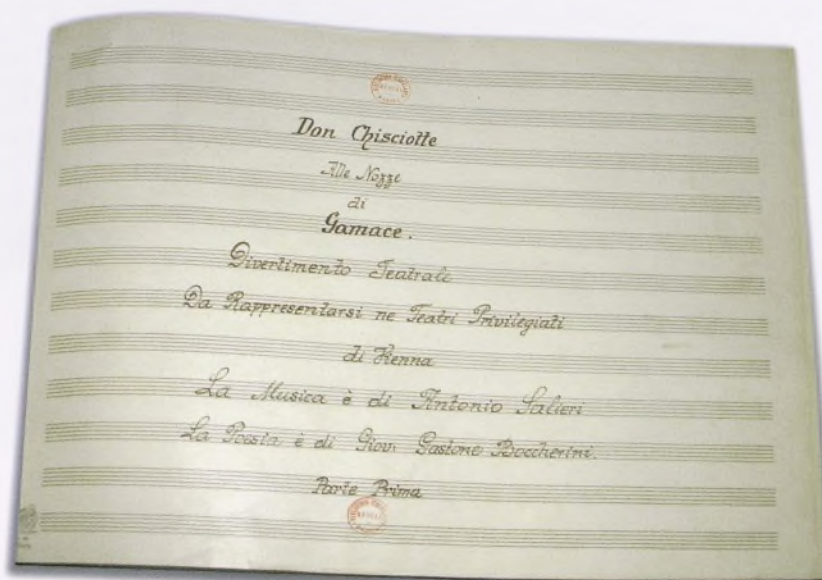 Don Chisciotte
Alle Nozze
di
Gamace.
Divertimento Teatrale
Da Rappresentarsi ne Teatri Privilegiati
di Vienna
La Musica è di Antonio Salieri
La Poesia è di Giov. Gastone Boccherini.
Parte Prima